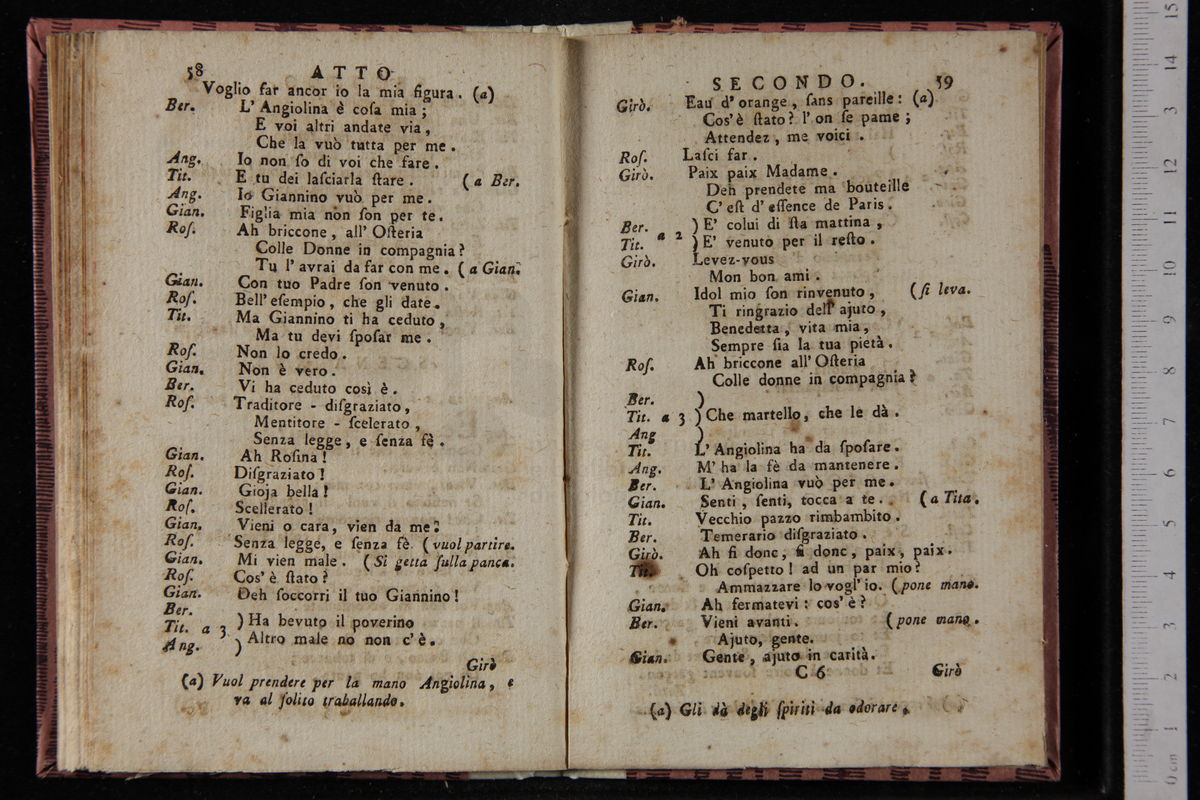 58 ATTO
Voglio far ancor io la mia figura. (a)
Ber. L' Angiolina è coſa mia;
E voi altri andate via,
Che la vuò tutta per me.
Ang. Io non ſo di voi che fare.
Tit. E tu dei laſciarla ſtare. (a Ber.
Ang. Io Giannino vuò per me.
Gian. Figlia mia non ſon per te.
Roſ. Ah briccone, all' Oſteria
Colle Donne in compagnia?
Tu l' avrai da far con me. (a Gian.
Gian. Con tuo Padre ſon venuto.
Roſ. Bell' eſempio, che gli date.
Tit. Ma Giannino ti ha ceduto,
Ma tu devi ſpoſar me.
Roſ. Non lo credo.
Gian. Non è vero.
Ber. Vi ha ceduto così è.
Roſ. Traditore - diſgraziato,
Mentitore - ſcelerato,
Senza legge, e ſenza fè.
Gian. Ah Roſina!
Roſ. Diſgraziato!
Gian. Gioja bella!
Roſ. Scellerato!
Gian. Vieni o cara, vien da me?
Roſ. Senza legge, e ſenza fè. (vuol partire.
Gian. Mi vien male. (Si getta ſulla panca.
Roſ. Cos' è ſtato?
Gian. Deh ſoccorri il tuo Giannino!
Ber.
Tit. a 3 ) Ha bevuto il poverino
Ang. ) Altro male no non c' è.
Girò
(a) Vuol prendere per la mano Angiolina, e
va al ſolito traballando.
SECONDO. 59
Girò. Eau d' orange, ſans pareille: (a)
Cos' è ſtato? l' on ſe pame;
Attendez, me voici.
Roſ. Laſci far.
Girò. Paix paix Madame.
Deh prendete ma bouteille
C' eſt d' eſſence de Paris.
Ber. ) E' colui di ſta mattina,
Tit. a 2 ) E' venuto per il reſto.
Girò. Levez-vous
Mon bon ami.
Gian. Idol mio ſon rinvenuto, (ſi leva.
Ti ringrazio dell' ajuto,
Benedetta, vita mia,
Sempre ſia la tua pietà.
Roſ. Ah briccone all' Oſteria
Colle donne in compagnia?
Ber. )
Tit. a 3 ) Che martello, che le dà.
Ang )
Tit. L' Angiolina ha da ſpoſare.
Ang. M' ha la fè da mantenere.
Ber. L' Angiolina vuò per me.
Gian. Senti, ſenti, tocca a te. (a Tita.
Tit. Vecchio pazzo rimbambito.
Ber. Temerario diſgraziato.
Girò. Ah fi donc, fi donc, paix, paix.
Tit. Oh coſpetto! ad un par mio?
Ammazzare lo vogl' io. (pone mano.
Gian. Ah fermatevi: cos' è?
Ber. Vieni avanti. (pone mano.
Ajuto, gente.
Gian. Gente, ajuto in carità.
C 6 Girò
(a) Gli dà degli ſpiriti da odorare.
0 cm 1 2 3 4 5 6 7 8 9 10 11 12 3 14 15